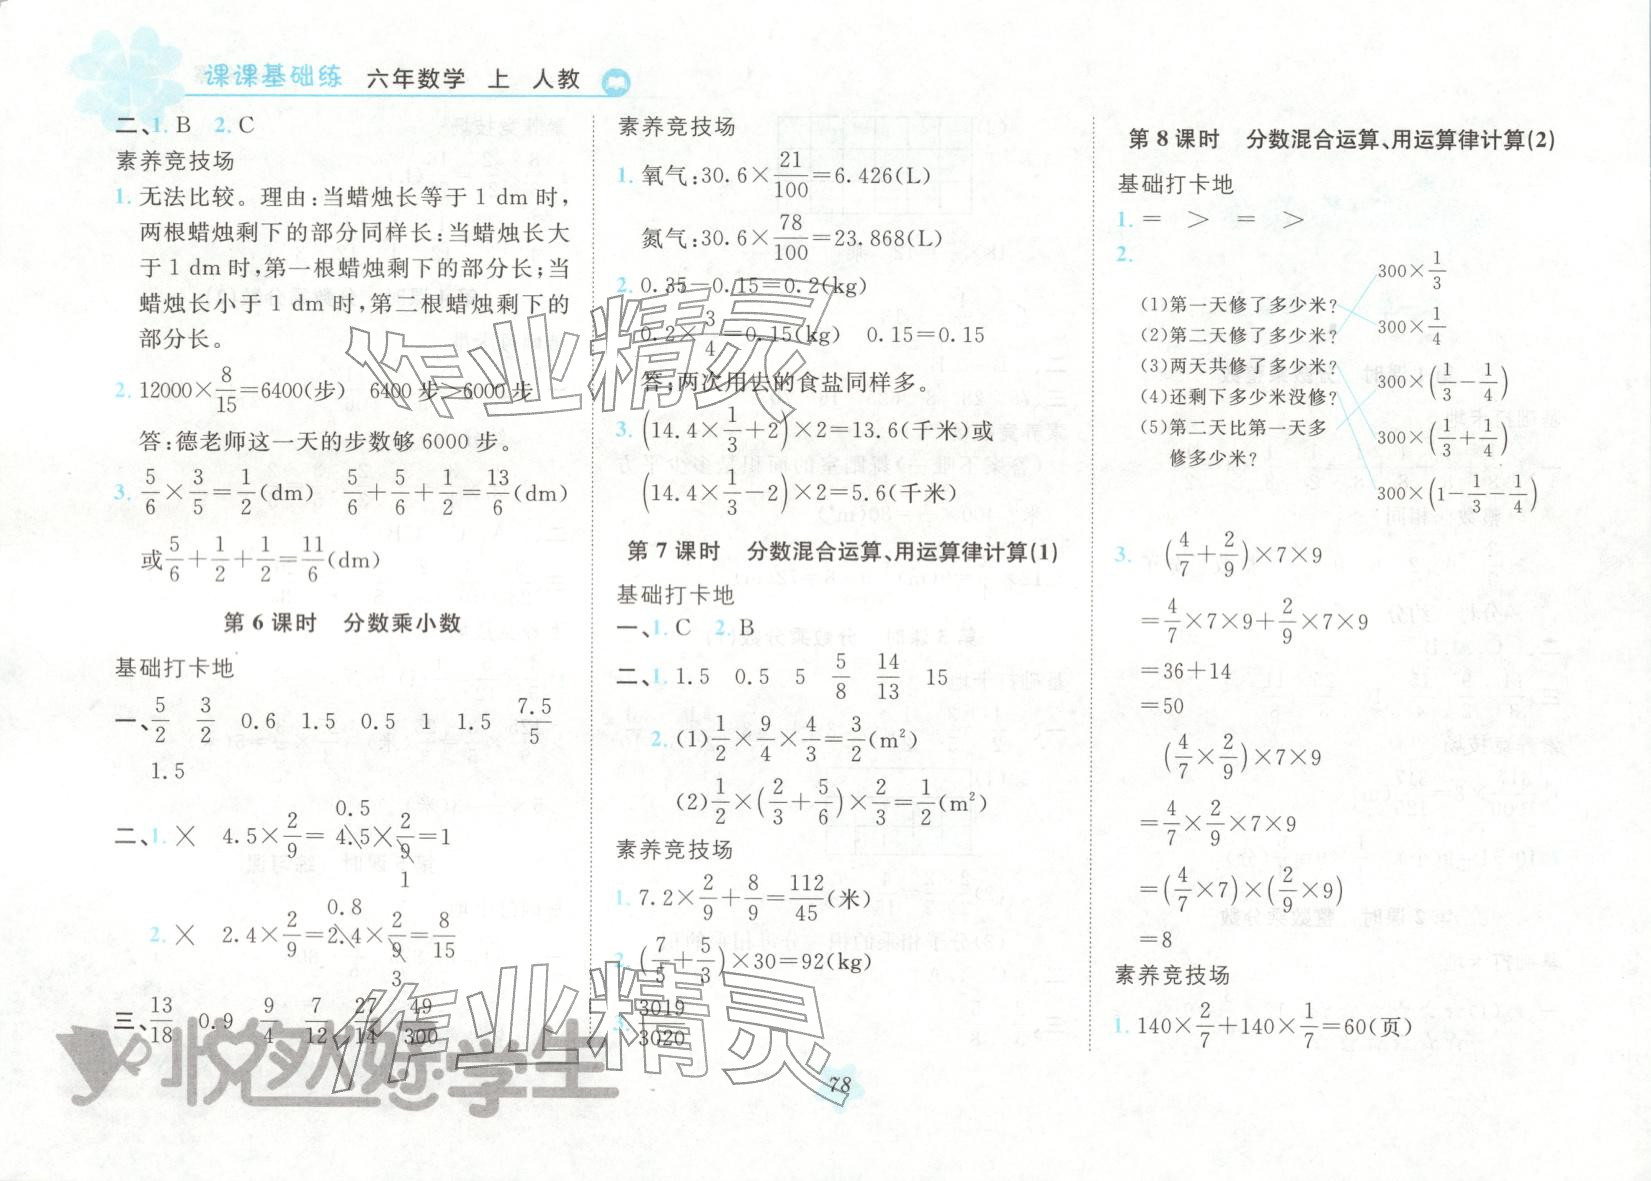 课课基础练 六年数学 上 人教
二、1. B 2. C
素养竞技场
1. 无法比较。理由:当蜡烛长等于 1 dm 时,
两根蜡烛剩下的部分同样长;当蜡烛长大
于 1 dm 时,第一根蜡烛剩下的部分长;当
蜡烛长小于 1 dm 时,第二根蜡烛剩下的
部分长。
2. 12000×8/15=6400(步) 6400 步>6000 步
答:德老师这一天的步数够 6000 步。
3. 5/6×3/5=1/2(dm) 5/6+5/6+1/2=13/6(dm)
或5/6+1/2+1/2=11/6(dm)
第 6 课时 分数乘小数
基础打卡地
一、5/2 3/2 0.6 1.5 0.5 1 1.5 7.5/5
1.5
二、1. × 4.5×2/9=4.5×2/9=1
0.5
1
2. × 2.4×2/9=2.4×2/9=8/15
0.8
3
三、13/18 0.9 9/4 7/12 27/14 49/300
素养竞技场
1. 氧气:30.6×21/100=6.426(L)
氮气:30.6×78/100=23.868(L)
2. 0.35-0.15=0.2(kg)
0.2×3/4=0.15(kg) 0.15=0.15
答:两次用去的食盐同样多。
3. (14.4×1/3+2)×2=13.6(千米)或
(14.4×1/3-2)×2=5.6(千米)
第 7 课时 分数混合运算、用运算律计算(1)
基础打卡地
一、1. C 2. B
二、1. 1.5 0.5 5 5/8 14/13 15
2. (1)1/2×9/4×4/3=3/2(m²)
(2)1/2×(2/3+5/6)×2/3=1/2(m²)
素养竞技场
1. 7.2×2/9+8/9=112/45(米)
2. (7/5+5/3)×30=92(kg)
3. 3019/3020
第 8 课时 分数混合运算、用运算律计算(2)
基础打卡地
1. = > = >
2.
(1)第一天修了多少米?
(2)第二天修了多少米?
(3)两天共修了多少米?
(4)还剩下多少米没修?
(5)第二天比第一天多
修多少米?
300×1/3
300×1/4
300×(1/3-1/4)
300×(1/3+1/4)
300×(1-1/3-1/4)
3. (4/7+2/9)×7×9
=4/7×7×9+2/9×7×9
=36+14
=50
(4/7×2/9)×7×9
=4/7×2/9×7×9
=(4/7×7)×(2/9×9)
=8
素养竞技场
1. 140×2/7+140×1/7=60(页)
78
作业精灵
作业精灵
悦然好学生